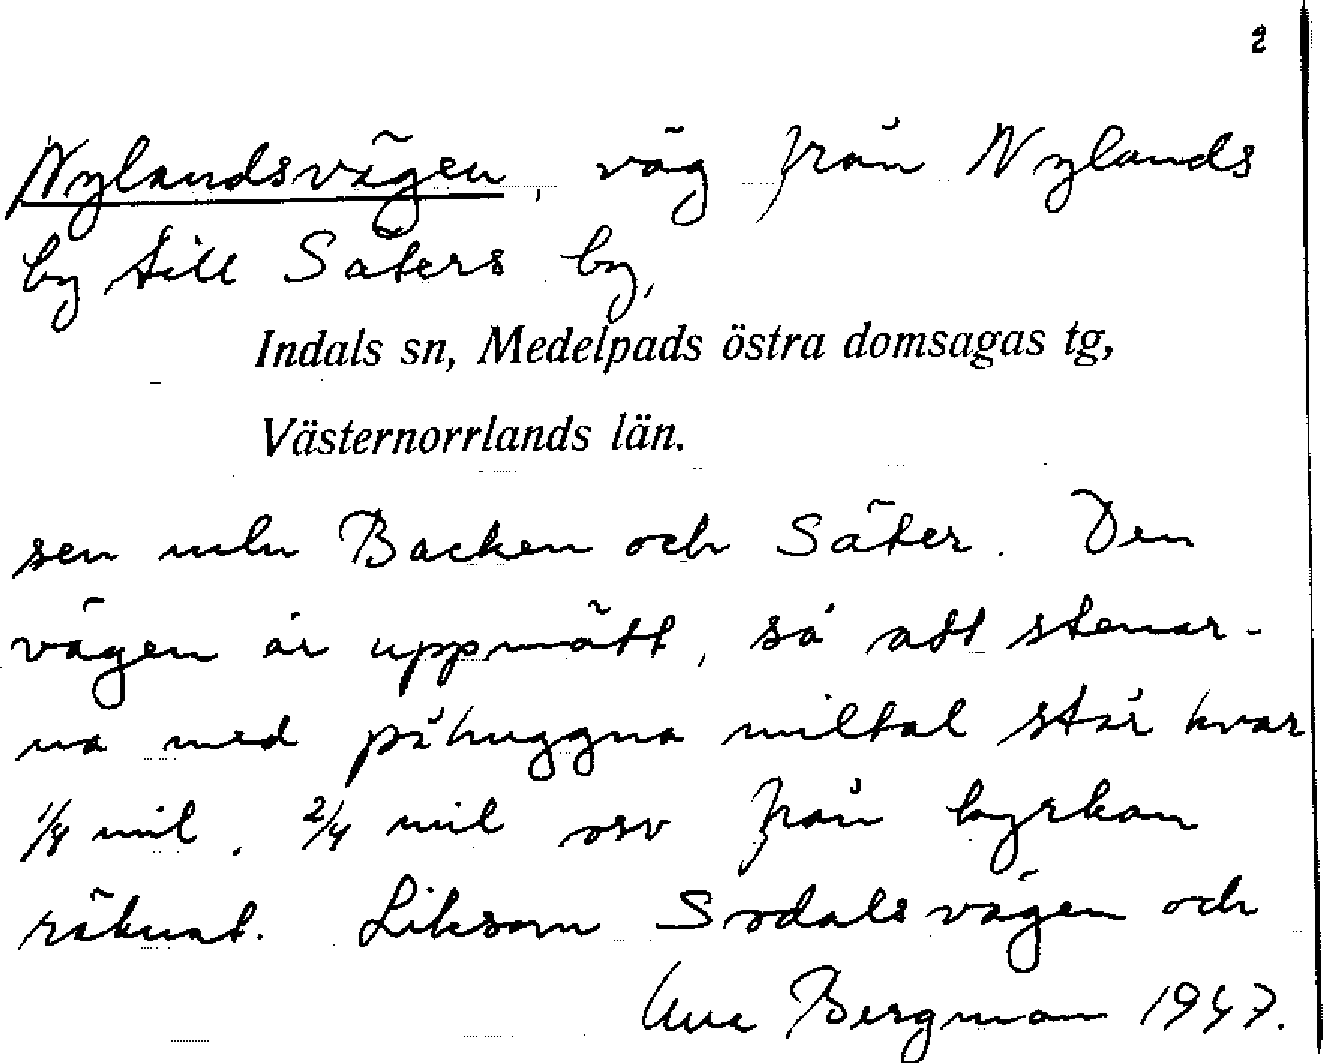 2
Nylandsvägen, väg från Nylands
by till Säters by,
Indals sn, Medelpads östra domsagas tg,
Västernorrlands län.
sen mln Backen och Säter. Den
vägen är uppmätt, så att stenar-
na med påhuggna miltal står kvar
1/4 mil, 2/4 mil osv från kyrkan
räknat. Liksom Sodalsvägen och
Bergman 1947.